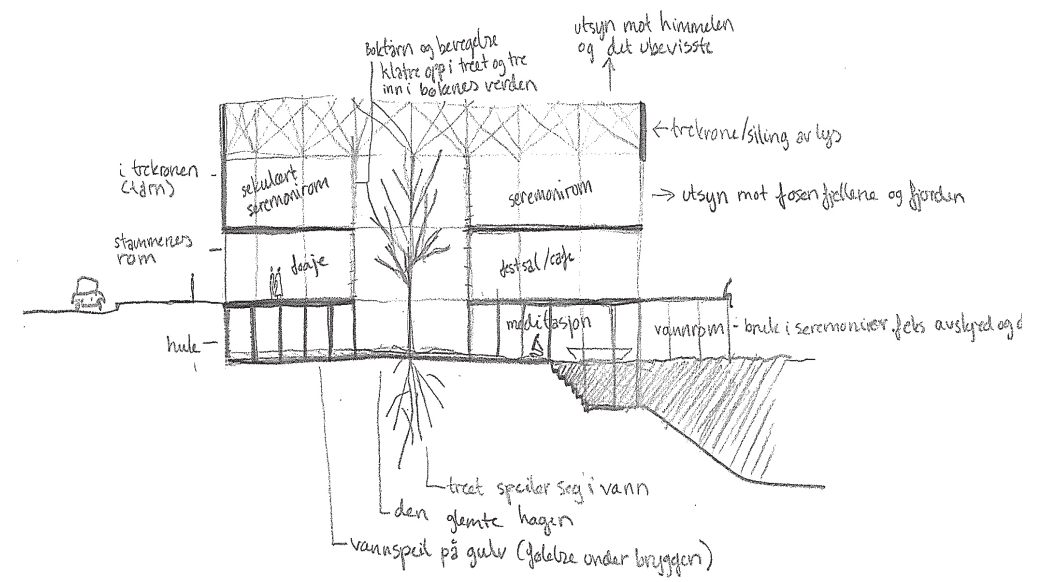 utsyn mot himmelen
og det ubevisste
Boktårn og bevegelse
klatre opp i treet og tre
inn i bøkenes verden
trekrone/siling av lys
i trekronen
(tårn)
sekulært
seremonirom
seremonirom
utsyn mot fosenfjellene og fjorden
stammenes
rom
foaje
festsal/cafe
hule
meditasjon
vannrom - bruk i seremonier f.eks avskjed og d
treet speiler seg i vann
den glemte hagen
vannspeil på gulv (følelse under bryggen)